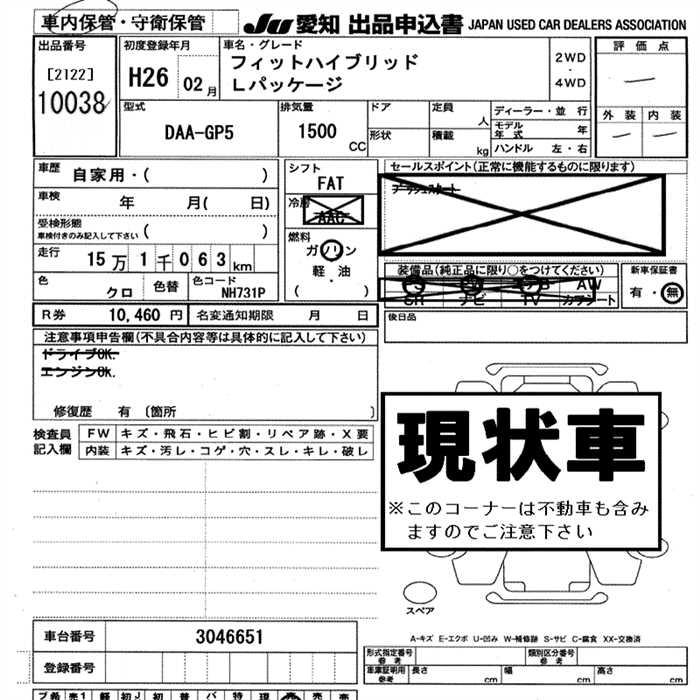 車内保管・守衛保管
JU 愛知 出品申込書 JAPAN USED CAR DEALERS ASSOCIATION
出品番号
[2122]
10038
初度登録年月
H26 02月
車名・グレード
フィットハイブリッド
Lパッケージ
2WD
・
4WD
評価点
外装 内装
型式
DAA-GP5
排気量
1500
CC
ドア
形状
定員
人
積載
kg
ディーラー・並行
モデル年式 年
ハンドル 左・右
車歴 自家用・( )
車検 年 月( 日)
受検形態
車検付きのみ記入して下さい ( )
走行 15万1千063km
色 クロ
色替
色コード
NH731P
シフト
FAT
冷房
AAC
燃料
ガソリン
軽・油
( )
セールスポイント(正常に機能するものに限ります)
装備品(純正品に限り○をつけてください)
AW
SR ナビ TV カラシート
新車保証書
有・無
R券 10,460 円 名変通知期限 月 日
後日品
注意事項申告欄(不具合内容等は具体的に記入して下さい)
ドライブOK.
エンジンOk.
修復歴 有 〔箇所 〕
検査員
記入欄
FW キズ・飛石・ヒビ割・リペア跡・X要
内装 キズ・汚レ・コゲ・穴・スレ・キレ・破レ
現状車
※このコーナーは不動車も含み
ますのでご注意下さい
スペア
A-キズ E-エクボ U-凹み W-補修跡 S-サビ C-腐食 XX-交換済
車台番号 3046651
登録番号
形式指定番号
参考
類別区分番号
参考
車庫証明用
参考
長さ cm 幅 cm 高さ cm